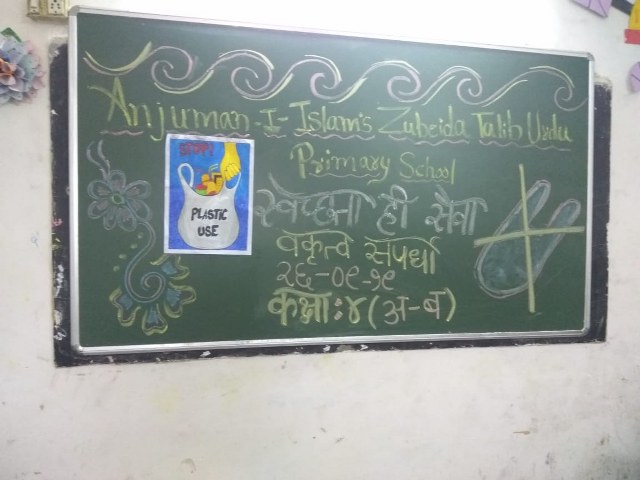 Anjuman-I-Islam's Zubeida Talib Urdu
Primary School
STOP!
PLASTIC
USE
स्वच्छता ही सेवा
वकृत्व सपर्धा
२६-०९-१९
कक्षा:४(अ-ब)